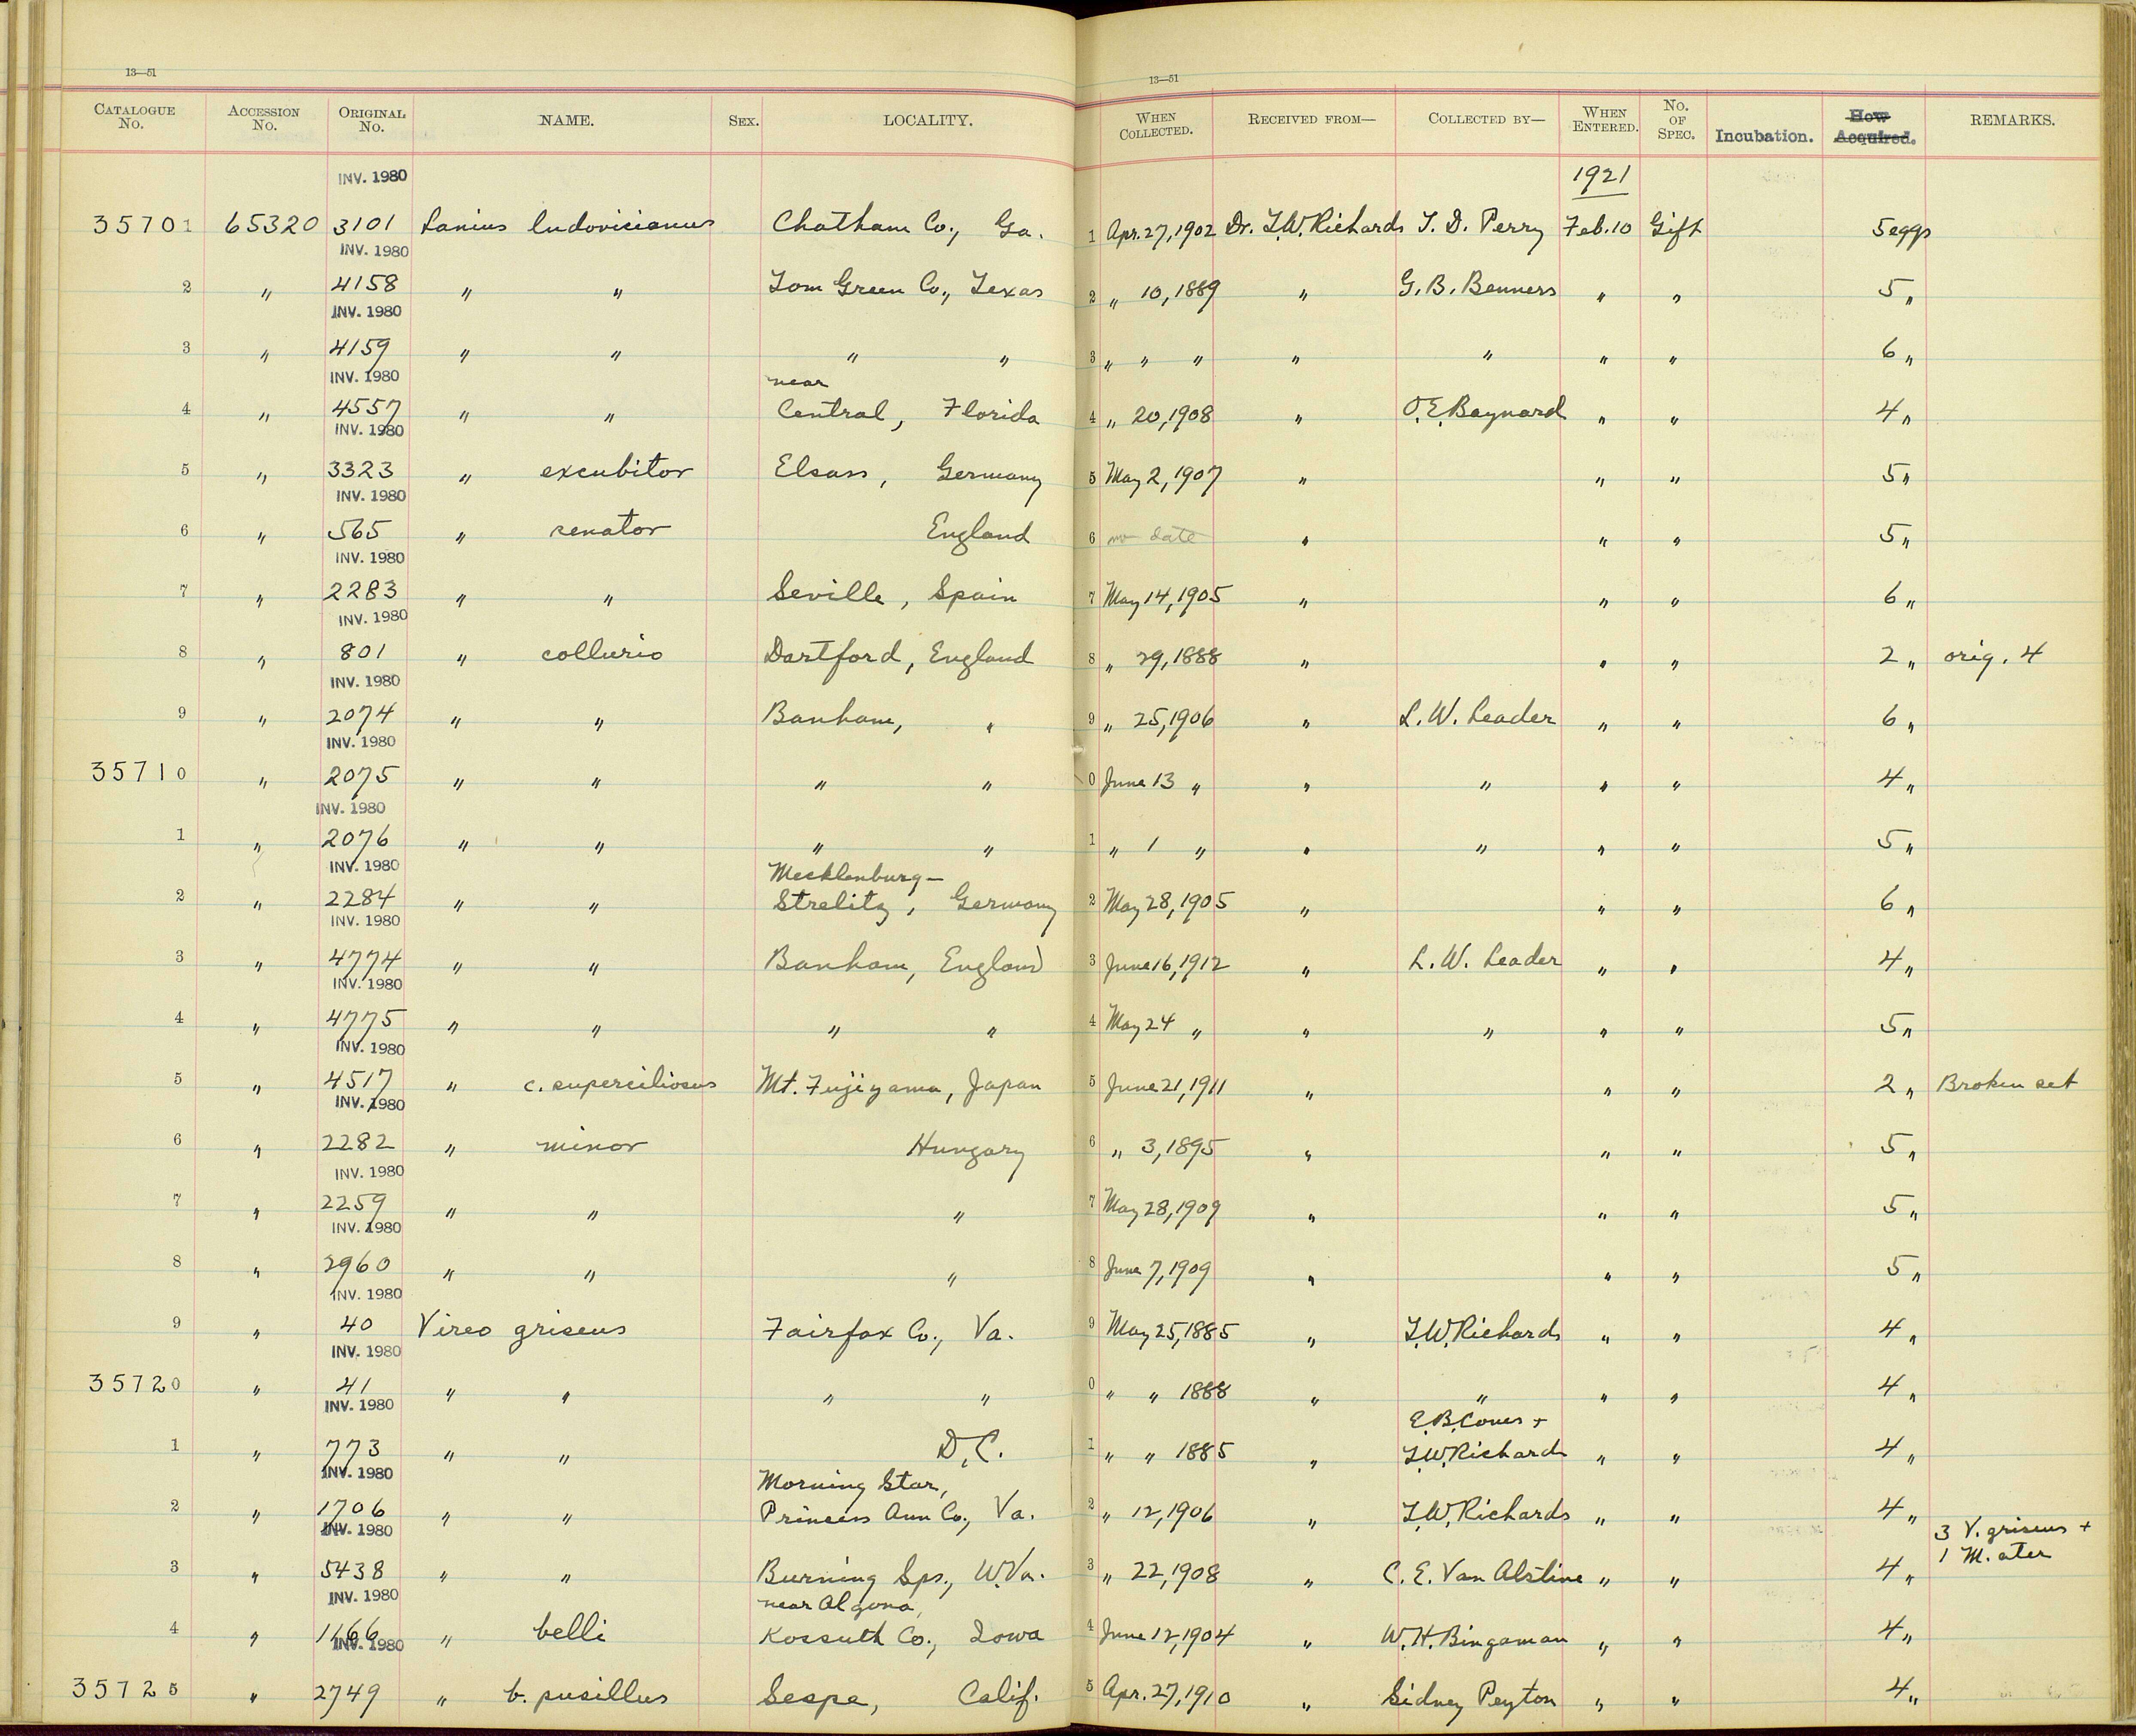 13—51
13—51
CATALOGUE No. ACCESSION No. ORIGINAL No. NAME. SEX. LOCALITY. WHEN COLLECTED. RECEIVED FROM— COLLECTED BY— WHEN ENTERED. No. OF SPEC. Incubation. How Acquired. REMARKS.
INV. 1980 1921
35701 65320 3101 Lanius ludovicianus Chatham Co., Ga. 1 Apr. 27, 1902 Dr. T.W. Richards T. D. Perry Feb. 10 Gift 5 eggs
INV. 1980
2 " 4158 " " Tom Green Co., Texas 2 " 10, 1889 " G. B. Benners " " 5 "
INV. 1980
3 " 4159 " " " " 3 " " " " " " " 6 "
INV. 1980 near
4 " 4557 " " Central, Florida 4 " 20, 1908 " O. E. Baynard " " 4 "
INV. 1980
5 " 3323 " excubitor Elsass, Germany 5 May 2, 1907 " " " 5 "
INV. 1980
6 " 565 " senator England 6 no date " " " 5 "
INV. 1980
7 " 2283 " " Seville, Spain 7 May 14, 1905 " " " 6 "
INV. 1980
8 " 801 " collurio Dartford, England 8 " 29, 1888 " " " 2 " orig. 4
INV. 1980
9 " 2074 " " Banham, " 9 " 25, 1906 " L. W. Leader " " 6 "
INV. 1980
35710 " 2075 " " " " 0 June 13 " " " " " 4 "
INV. 1980
1 " 2076 " " " " 1 " 1 " " " " " 5 "
INV. 1980 Mecklenburg–
2 " 2284 " " Strelitz, Germany 2 May 28, 1905 " " " 6 "
INV. 1980
3 " 4774 " " Banham, England 3 June 16, 1912 " L. W. Leader " " 4 "
INV. 1980
4 " 4775 " " " " 4 May 24 " " " " " 5 "
INV. 1980
5 " 4517 " c. superciliosus Mt. Fujiyama, Japan 5 June 21, 1911 " " " 2 " Broken set
INV. 1980
6 " 2282 " minor Hungary 6 " 3, 1895 " " " 5 "
INV. 1980
7 " 2259 " " " 7 May 28, 1909 " " " 5 "
INV. 1980
8 " 2960 " " " 8 June 7, 1909 " " " 5 "
INV. 1980
9 " 40 Vireo griseus Fairfax Co., Va. 9 May 25, 1885 " T.W. Richards " " 4 "
INV. 1980
35720 " 41 " " " " 0 " " 1888 " " " " 4 "
INV. 1980 E. B. Coues +
1 " 773 " " D.C. 1 " " 1885 " T.W. Richards " " 4 "
INV. 1980 Morning Star,
2 " 1706 " " Princess Ann Co., Va. 2 " 12, 1906 " T.W. Richards " " 4 "
INV. 1980 3 V. griseus +
1 M. ater
3 " 5438 " " Burning Sps., W.Va. 3 " 22, 1908 " C. E. Van Alstine " " 4 "
INV. 1980 near Algona,
4 " 1166 " belli Kossuth Co., Iowa 4 June 12, 1904 " W. H. Bingaman " " 4 "
INV. 1980
35725 " 2749 " b. pusillus Sespe, Calif. 5 Apr. 27, 1910 " Sidney Peyton " " 4 "